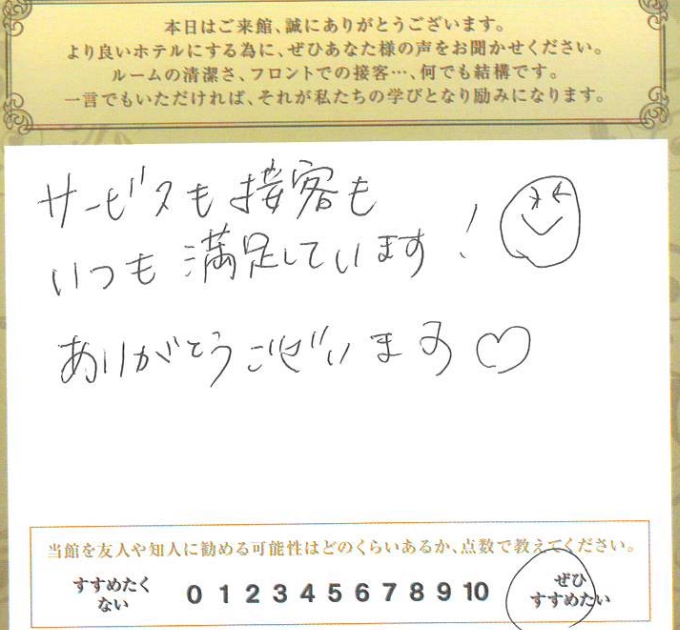 本日はご来館、誠にありがとうございます。
より良いホテルにする為に、ぜひあなた様の声をお聞かせください。
ルームの清潔さ、フロントでの接客…、何でも結構です。
一言でもいただければ、それが私たちの学びとなり励みになります。
サービスも接客も
いつも満足しています!
ありがとうございます♡
当館を友人や知人に勧める可能性はどのくらいあるか、点数で教えてください。
すすめたくない 0 1 2 3 4 5 6 7 8 9 10 ぜひすすめたい